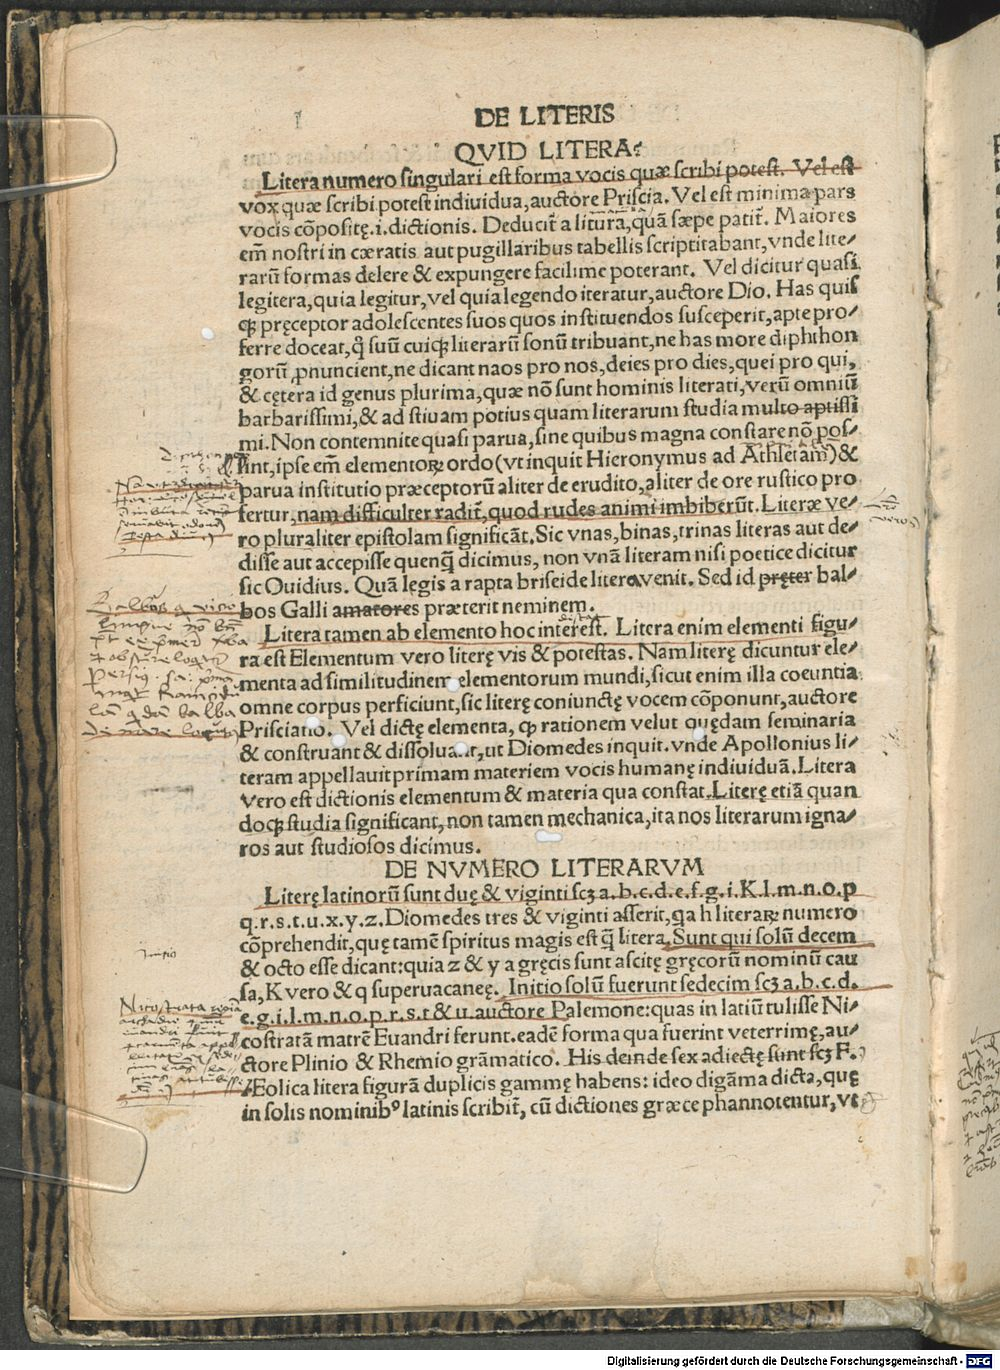 DE LITERIS
QVID LITERA?
Litera numero singulari est forma vocis quæ scribi potest. Vel est
vox quæ scribi potest indiuidua, auctore Priscia. Vel est minima pars
vocis cõpositę .i. dictionis. Deducit̃ a liturã, quã sæpe patit̃. Maiores
em̃ nostri in cæratis aut pugillaribus tabellis scriptitabant, vnde lite⸗
rarũ formas delere & expungere facilime poterant. Vel dicitur quasi
legitera, quia legitur, vel quia legendo iteratur, auctore Dio. Has quis
qꝫ pręceptor adolescentes suos quos instituendos susceperit, apte pro⸗
ferre doceat, q̃ suũ cuiqꝫ literarũ sonũ tribuant, ne has more diphthon
gorũ ꝓnuncient, ne dicant naos pro nos, deies pro dies, quei pro qui,
& cętera id genus plurima, quæ nõ sunt hominis literati, verũ omniũ
barbarissimi, & ad stiuam potius quam literarum studia multo aptissi
mi. Non contemnite quasi parua, sine quibus magna constare nõ pos⸗
sint, ipse em̃ elementoꝝ ordo (vt inquit Hieronymus ad Athletam) &
parua institutio præceptorũ aliter de erudito, aliter de ore rustico pro
fertur, nam difficulter radit̃, quod rudes animi imbiberũt. Literæ ve⸗
ro pluraliter epistolam significãt. Sic vnas, binas, trinas literas aut de⸗
disse aut accepisse quenq̃ dicimus, non vnã literam nisi poetice dicitur
sic Ouidius. Quã legis a rapta briseide litera venit. Sed id pręter bal⸗
bos Galli amatores præterit neminem.
Litera tamen ab elemento hoc interest. Litera enim elementi figu⸗
ra est Elementum vero literę vis & potestas. Nam literę dicuntur ele⸗
menta ad similitudinem elementorum mundi, sicut enim illa coeuntia
omne corpus perficiunt, sic literę coniunctę vocem cõponunt, auctore
Prisciano. Vel dictę elementa, ꝙ rationem velut quędam seminaria
& construant & dissoluant, ut Diomedes inquit. vnde Apollonius li⸗
teram appellauit primam materiem vocis humanę indiuiduã. Litera
vero est dictionis elementum & materia qua constat. Literę etiã quan
doqꝫ studia significant, non tamen mechanica, ita nos literarum igna⸗
ros aut studiosos dicimus.
DE NVMERO LITERARVM
Literę latinorũ sunt duę & viginti scꝫ a.b.c.d.e.f.g.i.K.l.m.n.o.p
q.r.s.t.u.x.y.z. Diomedes tres & viginti asserit, qa h literaꝝ numero
cõprehendit, quę tamẽ spiritus magis est q̃ litera. Sunt qui solũ decem
& octo esse dicant: quia z & y a gręcis sunt ascitę gręcorũ nominũ cau
sa, K vero & q superuacaneę. Initio solũ fuerunt sedecim scꝫ a.b.c.d.
e.g.i.l.m.n.o.p.r.s.t & u. auctore Palemone: quas in latiũ tulisse Ni⸗
costratã matrẽ Euandri ferunt. eadẽ forma qua fuerint veterrimę, au⸗
ctore Plinio & Rhemio grãmatico. His deinde sex adiectę sunt scꝫ F.
Æolica litera figurã duplicis gammę habens: ideo digãma dicta, quę
in solis nominibꝰ latinis scribit̃, cũ dictiones græce phannotentur, vt
Digitalisierung gefördert durch die Deutsche Forschungsgemeinschaft - DFG